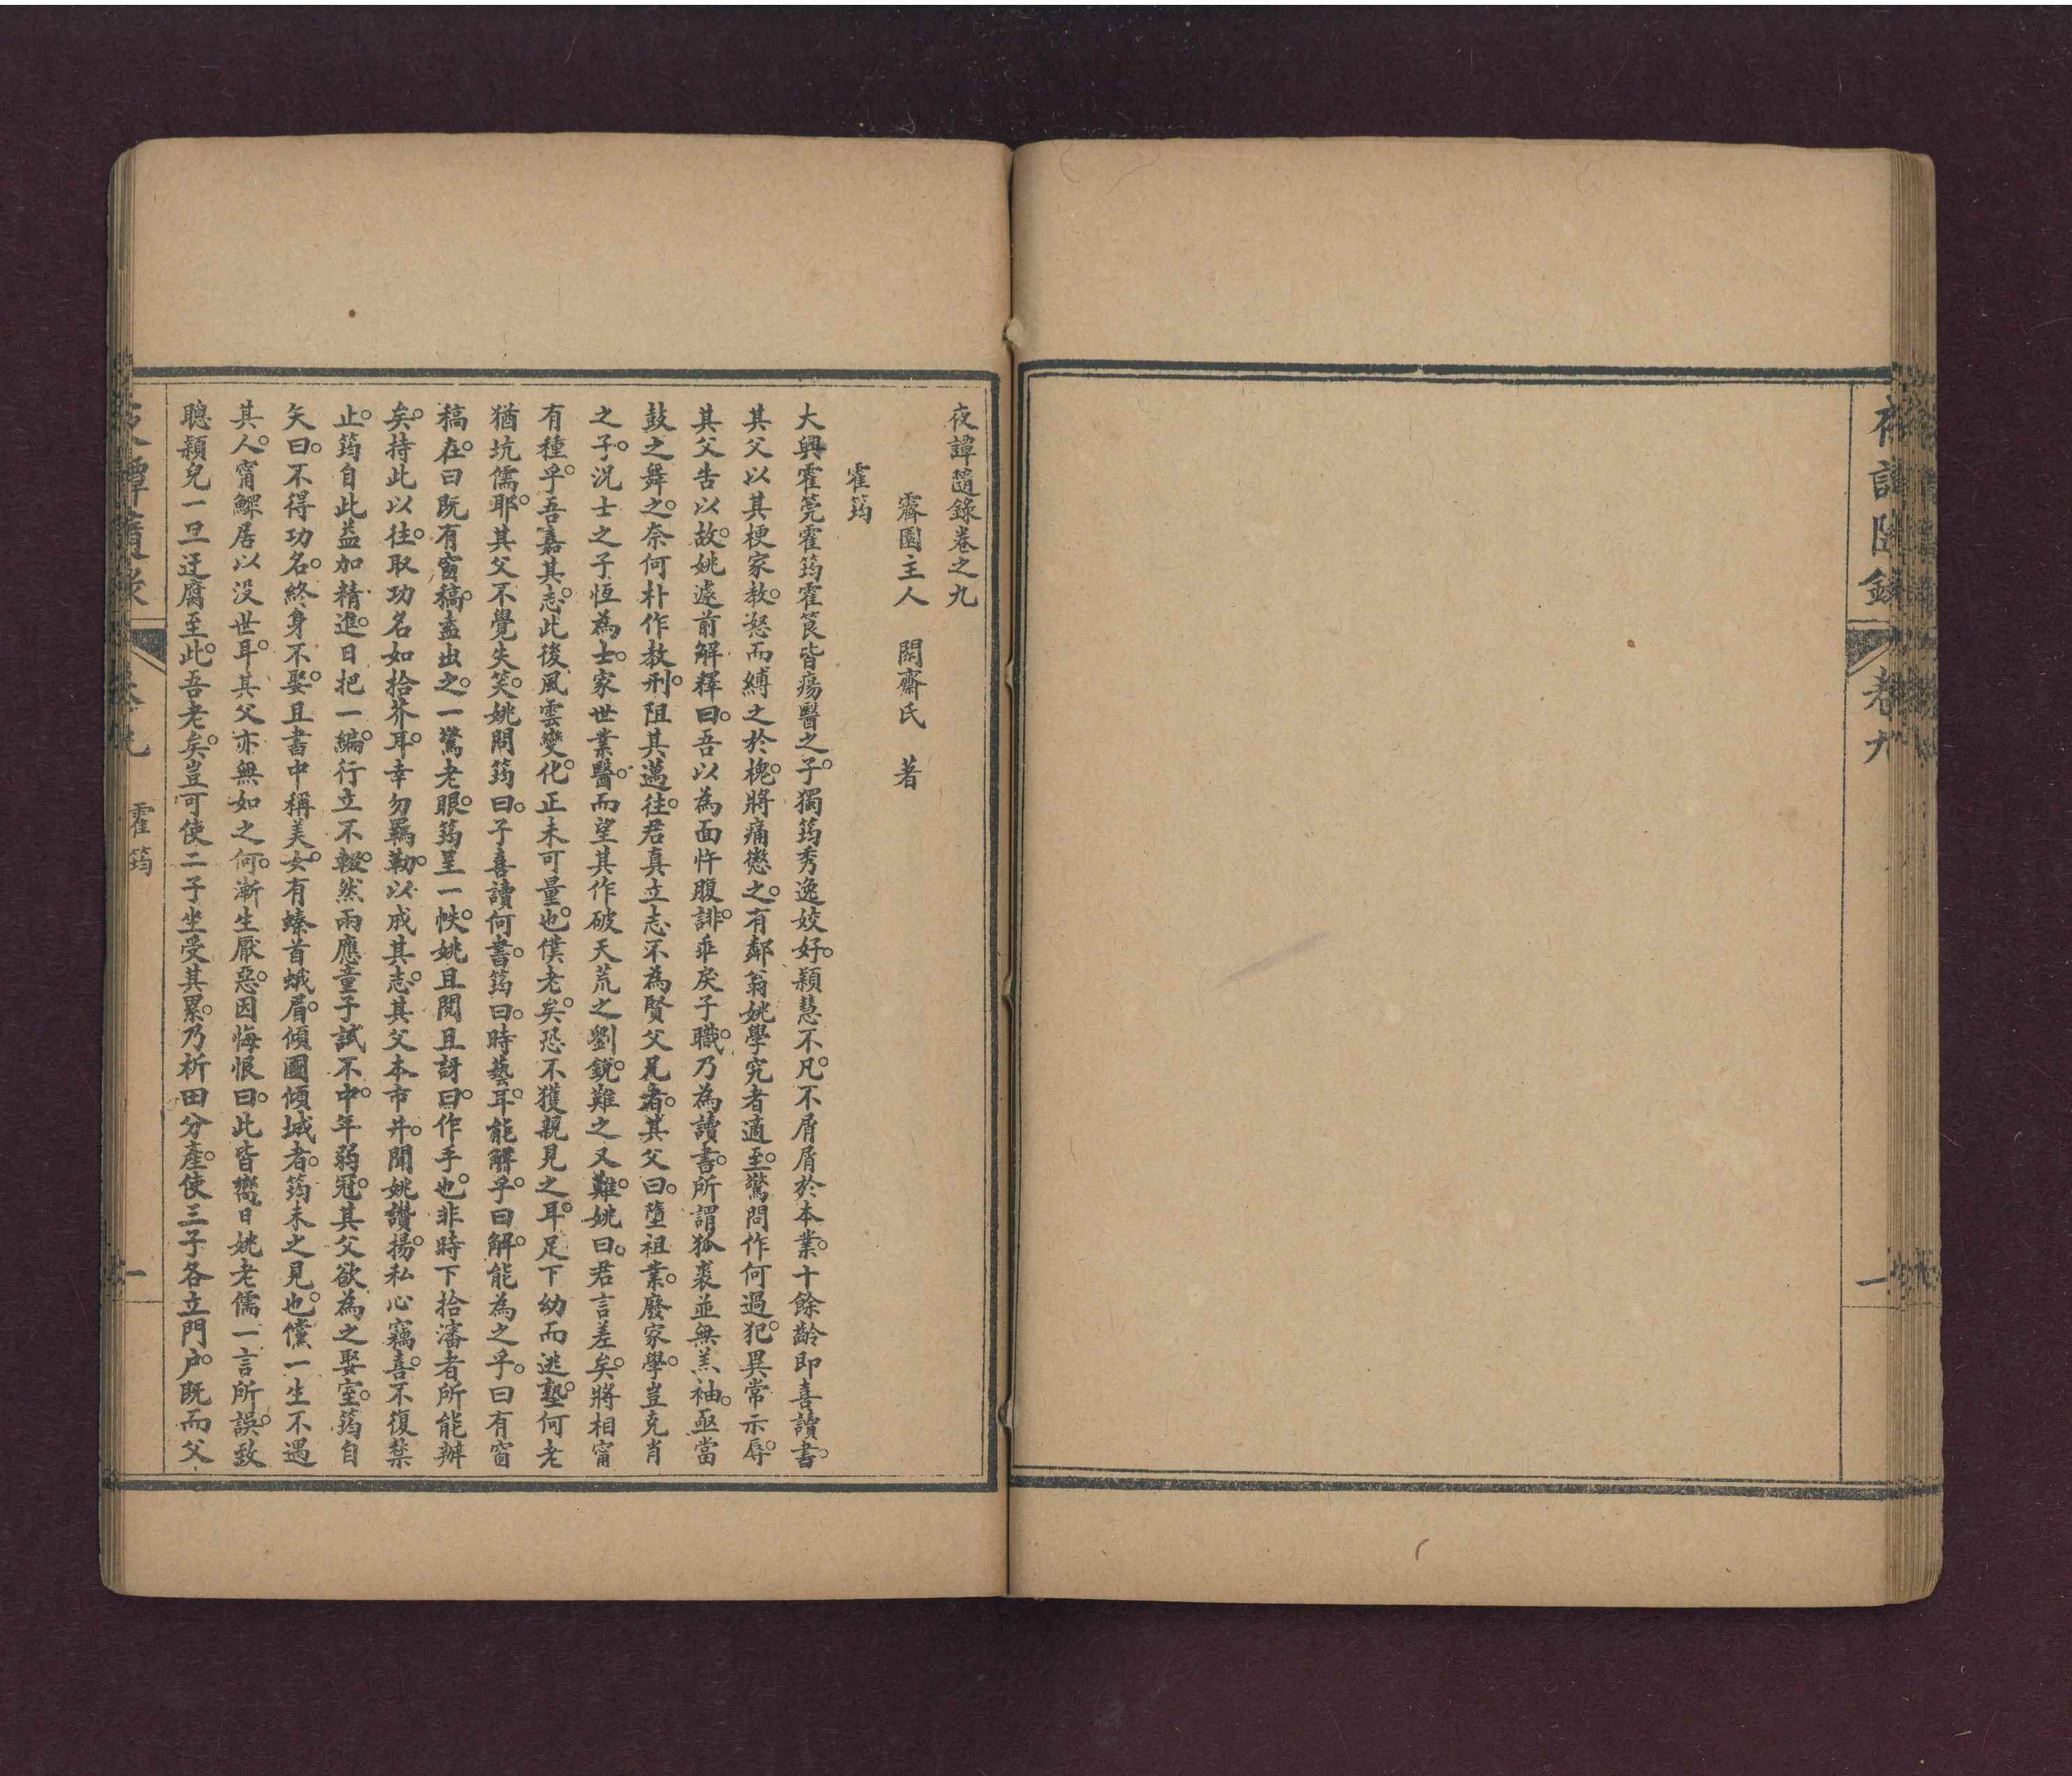 夜譚隨錄 卷九 一
夜譚隨錄卷之九
霽園主人 閑齋氏 著
霍筠
大興霍筦霍筠霍筤皆瘍醫之子。獨筠秀逸姣好。穎慧不凡。不屑屑於本業。十餘齡即喜讀書。
其父以其梗家教。怒而縛之於槐。將痛懲之。有鄰翁姚學究者適至。驚問作何過犯。異常示辱。
其父告以故。姚遽前解釋曰。吾以為面忤腹誹。乖戾子職。乃為讀書。所謂狐裘並無羔袖。亟當
鼓之舞之。奈何朴作教刑。阻其邁往。君真立志不為賢父兄者。其父曰。墮祖業。廢家學。豈克肖
之子。況士之子恆為士。家世業醫。而望其作破天荒之劉銳。難之又難。姚曰。君言差矣。將相甯
有種乎。吾嘉其志。此後風雲變化。正未可量也。僕老矣。恐不獲親見之耳。足下幼而逃塾。何老
猶坑儒耶。其父不覺失笑。姚問筠曰。子喜讀何書。筠曰。時藝耳。能解乎。曰解。能為之乎。曰有窗
稿在。曰既有窗稿。盍出之。一驚老眼。筠呈一帙。姚且閱且訝曰。作手也。非時下拾瀋者所能辦
矣。持此以往。取功名如拾芥耳。幸勿羈勒。以成其志。其父本市井。聞姚讚揚。私心竊喜。不復禁
止。筠自此益加精進。日把一編。行立不輟。然兩應童子試不中。年弱冠。其父欲為之娶室。筠自
矢曰。不得功名。終身不娶。且書中稱美女。有螓首蛾眉。傾國傾城者。筠未之見也。儻一生不遇
其人。甯鰥居以沒世耳。其父亦無如之何。漸生厭惡。因悔恨曰。此皆嚮日姚老儒一言所誤。致
聰穎兒一旦迂腐至此。吾老矣。豈可使二子坐受其累。乃析田分產。使三子各立門户。既而父
夜譚隨錄 卷九 霍筠 一